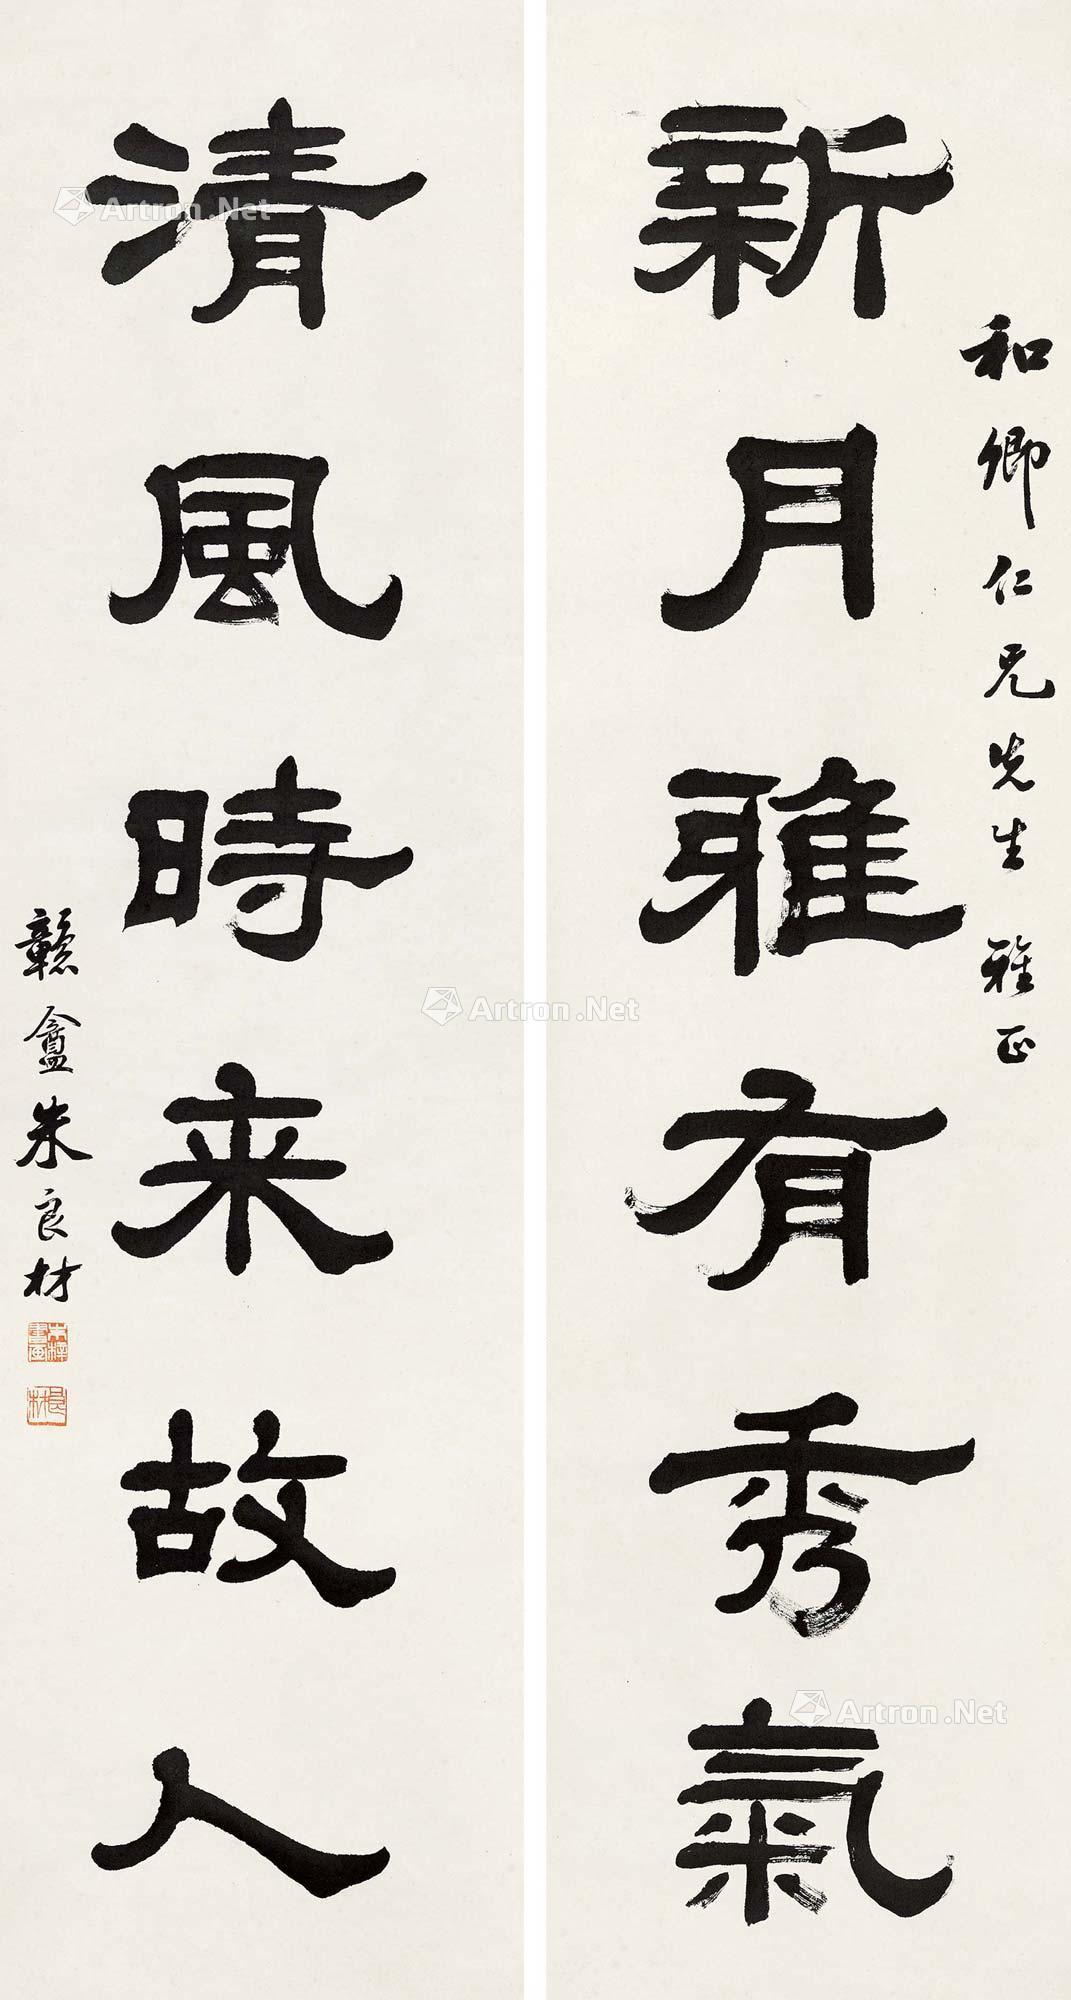 和卿仁兄先生 雅正
新月雅有秀氣
清風時来故人
盦朱良材
Artron.Net
Artron.Net
Artron.Net